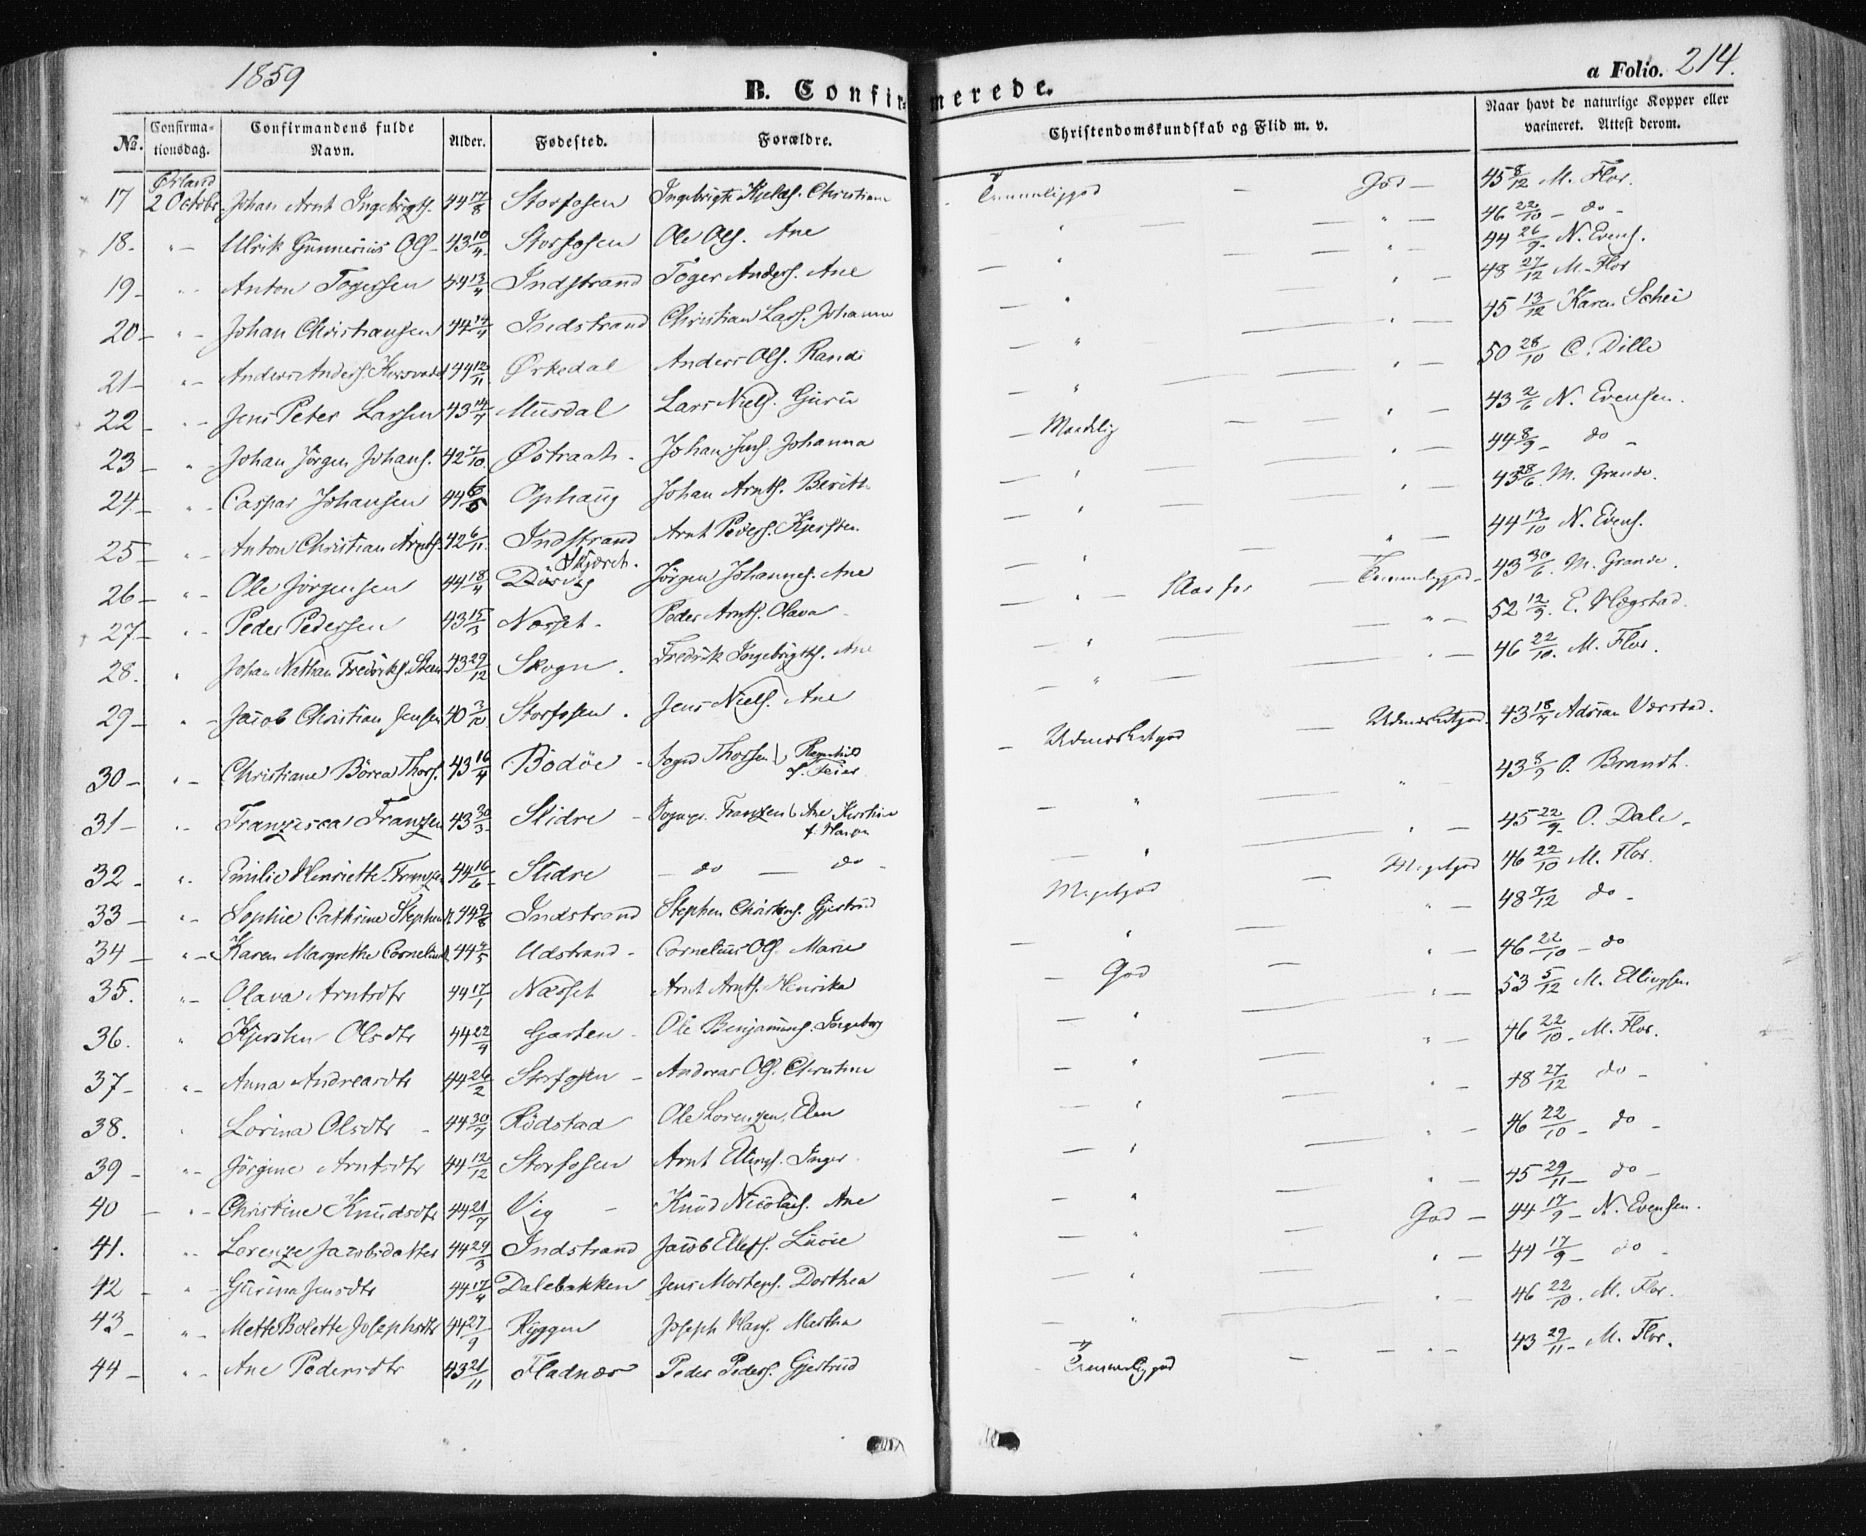 1859
B. Confirmerede.
a Folio. 214.
No. Confirmationsdag. Confirmandens fulde Navn. Alder. Fødested. Forældre. Christendomskundskab og Flid m. v. Naar havt de naturlige Kopper eller vacineret. Attest derom.
Ørland
17 2 Octobr Johan Arnt Ingebrigts. 44 17/8 Storfosen Ingebrigt Christiana Temmeliggod — God — 45 8/12 M. Flor.
18. " — Ulrik Gunnerius Ols. 43 10/4 Storfosen Ole Ols. Ane " — " — 46 22/10 — do —
19 — " — Anton Togersen 44 13/4 Indstrand Toger Anders. Ane — " — " — 44 26/9 N. Evens.
20 — " — Johan Christiansen 44 14/4 Indstrand Christian Lars. Johanna — " — " — 48 27/12 M. Flor
21 — " — Anders Anders. 44 12/11 Ørkedal Anders Ols. Randi — " — " — 45 13/12 Karen Schei
22 — " — Jens Peter Larsen 43 14/7 Musdal Lars Niels. Guru — " — " — 50 28/10 C. Dille
23 — " Johan Jörgen Johans. 42 7/10 Østraat. Johan Jens. Johanna — Maadelig — " — 43 2/6 N. Evensen.
24 — " — Caspar Johansen 44 6/5 Ophaug Johan Arnts. Berith — " — " — 44 8/9 — do —
25 — " — Anton Christian Arnts. 42 6/11 Indstrand Arnt Peders. Kjersten — " — " — 43 28/6 M. Grande.
Skjørch.
26 — " — Ole Jørgensen 44 18/4 Jörgen Johannes. Ane — " — Klosfor — Temmeliggod — 44 13/10 N. Evens.
27 — " — Peder Pedersen 43 15/3 Næsset. Peder Arnts. Olava — " — " — 43 30/6 M. Grande.
28. " Johan Nathan Fredriks. 43 29/12 Skogn. Fredrik Ingebrigts. Ane — " — " — 52 12/9 E. Hegstad.
29 — " — Jacob Christian Jensen 40 3/10 Storfosen. Jens Niels. Ane — " — " — 46 22/10 M. Flor.
30 — " — Christiane Börea Thors. 43 16/4 Bodöe — Thorsen — Udmærketgod — Udmærketgod. 43 18/7 Adrian Værstad.
31 — " — Franzisca Franzen 43 30/3 Slidre — Franzen — " — " 43 8/9 O. Brandt.
32 — " — Emilie Henriette Franzen 44 16/6 Slidre — do — do — — " — " — 45 22/9 O. Dale —
33 — " — Sophie Cathrine 44 9/8 Indstrand Stephen Christens. Gjertrud Megetgod — Megetgod 46 22/10 M. Flor.
34 — " — Karen Margrethe 44 4/5 Udstrand — Cornelius Ols. Marie — " — " — 48 7/12 do —
35. " — Olava Arntsdtr 44 17/1 Næsset Arnt Arnts. Henrika — God — " — 46 22/10 — do
36. " Kjersten Olsdtr 44 22/9 Garten — Ole Benjamins. Ingeborg — " — " — 53 5/12 M. Ellingsen.
37 — " — Anna Andreasdtr 44 26/2 Storfosen — Andreas Ols. Christine — " — " — 46 22/10 M. Flor.
38. " Lorina Olsdtr — 44 30/7 Rödstad Ole Lorenzen, Elen — " — " — 48 27/12 do —
39 — " — Jörgine Arntsdtr 44 12/12 Storfosen Arnt Ellings. Inger — " — " — 46 22/10 — do —
40 — " — Christine Knudsdtr 44 21/7 Vig — Knud Nicolais. Ane — " — " — 45 29/11 — do —
41. " — Lorenze Jacobsdatter 44 24/3 Indstrand Jacob Ellefs. Lucie — " — God — 44 17/9 — N. Evensen.
42 — " — Gurina Jensdtr 44 17/4 Dalebakken Jens Mortens. Dorthea — " — " — 44 17/9 — do —
43 — " — Mette Bolette Josephsdtr 44 27/9 Ryggen Joseph Hans. Martha — " — " — 46 22/10. M. Flor.
44 — " — Ane Pedersdtr 43 21/11 Fladnæs Peder Peders. Gjertrud — Temmeliggod — " — 43 29/11 — M. Flor.